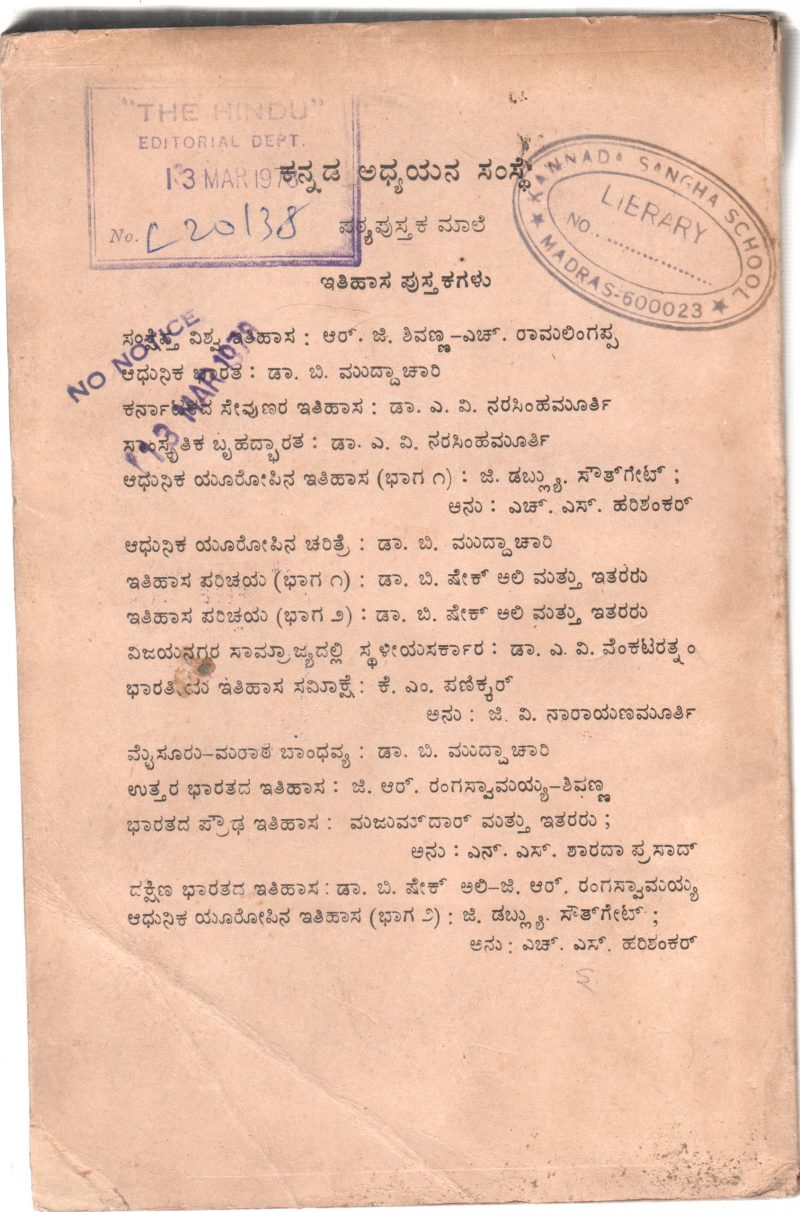 "THE HINDU"
EDITORIAL DEPT.
13 MAR 1978
No. C 20138
KANNADA SANGHA SCHOOL
LIBRARY
NO. ............
MADRAS-600023
ಕನ್ನಡ ಅಧ್ಯಯನ ಸಂಸ್ಥೆ
ಪಠ್ಯಪುಸ್ತಕ ಮಾಲೆ
ಇತಿಹಾಸ ಪುಸ್ತಕಗಳು
NO NOTICE
13 MAR 1978
ಸಂಕ್ಷಿಪ್ತ ವಿಶ್ವ ಇತಿಹಾಸ : ಆರ್. ಜಿ. ಶಿವಣ್ಣ–ಎಚ್. ರಾಮಲಿಂಗಪ್ಪ
ಆಧುನಿಕ ಭಾರತ : ಡಾ. ಬಿ. ಮುದ್ದಾಚಾರಿ
ಕರ್ನಾಟಕದ ಸೇವುಣರ ಇತಿಹಾಸ : ಡಾ. ಎ. ವಿ. ನರಸಿಂಹಮೂರ್ತಿ
ಸಾಂಸ್ಕೃತಿಕ ಬೃಹದ್ಭಾರತ : ಡಾ. ಎ. ವಿ. ನರಸಿಂಹಮೂರ್ತಿ
ಆಧುನಿಕ ಯೂರೋಪಿನ ಇತಿಹಾಸ (ಭಾಗ ೧) : ಜಿ. ಡಬ್ಲ್ಯು. ಸೌತ್‌ಗೇಟ್ ;
ಅನು : ಎಚ್. ಎಸ್. ಹರಿಶಂಕರ್
ಆಧುನಿಕ ಯೂರೋಪಿನ ಚರಿತ್ರೆ : ಡಾ. ಬಿ. ಮುದ್ದಾಚಾರಿ
ಇತಿಹಾಸ ಪರಿಚಯ (ಭಾಗ ೧) : ಡಾ. ಬಿ. ಷೇಕ್ ಅಲಿ ಮತ್ತು ಇತರರು
ಇತಿಹಾಸ ಪರಿಚಯ (ಭಾಗ ೨) : ಡಾ. ಬಿ. ಷೇಕ್ ಅಲಿ ಮತ್ತು ಇತರರು
ವಿಜಯನಗರ ಸಾಮ್ರಾಜ್ಯದಲ್ಲಿ ಸ್ಥಳೀಯಸರ್ಕಾರ : ಡಾ. ಎ. ವಿ. ವೆಂಕಟರತ್ನಂ
ಭಾರತೀಯ ಇತಿಹಾಸ ಸಮೀಕ್ಷೆ : ಕೆ. ಎಂ. ಪಣಿಕ್ಕರ್
ಅನು : ಜಿ. ವಿ. ನಾರಾಯಣಮೂರ್ತಿ
ಮೈಸೂರು–ಮರಾಠ ಬಾಂಧವ್ಯ : ಡಾ. ಬಿ. ಮುದ್ದಾಚಾರಿ
ಉತ್ತರ ಭಾರತದ ಇತಿಹಾಸ : ಜಿ. ಆರ್. ರಂಗಸ್ವಾಮಯ್ಯ–ಶಿವಣ್ಣ
ಭಾರತದ ಪ್ರೌಢ ಇತಿಹಾಸ : ಮಜುಮ್‌ದಾರ್ ಮತ್ತು ಇತರರು ;
ಅನು : ಎನ್. ಎಸ್. ಶಾರದಾ ಪ್ರಸಾದ್
ದಕ್ಷಿಣ ಭಾರತದ ಇತಿಹಾಸ : ಡಾ. ಬಿ. ಷೇಕ್ ಅಲಿ–ಜಿ. ಆರ್. ರಂಗಸ್ವಾಮಯ್ಯ
ಆಧುನಿಕ ಯೂರೋಪಿನ ಇತಿಹಾಸ (ಭಾಗ ೨) : ಜಿ. ಡಬ್ಲ್ಯು. ಸೌತ್‌ಗೇಟ್ ;
ಅನು : ಎಚ್. ಎಸ್. ಹರಿಶಂಕರ್